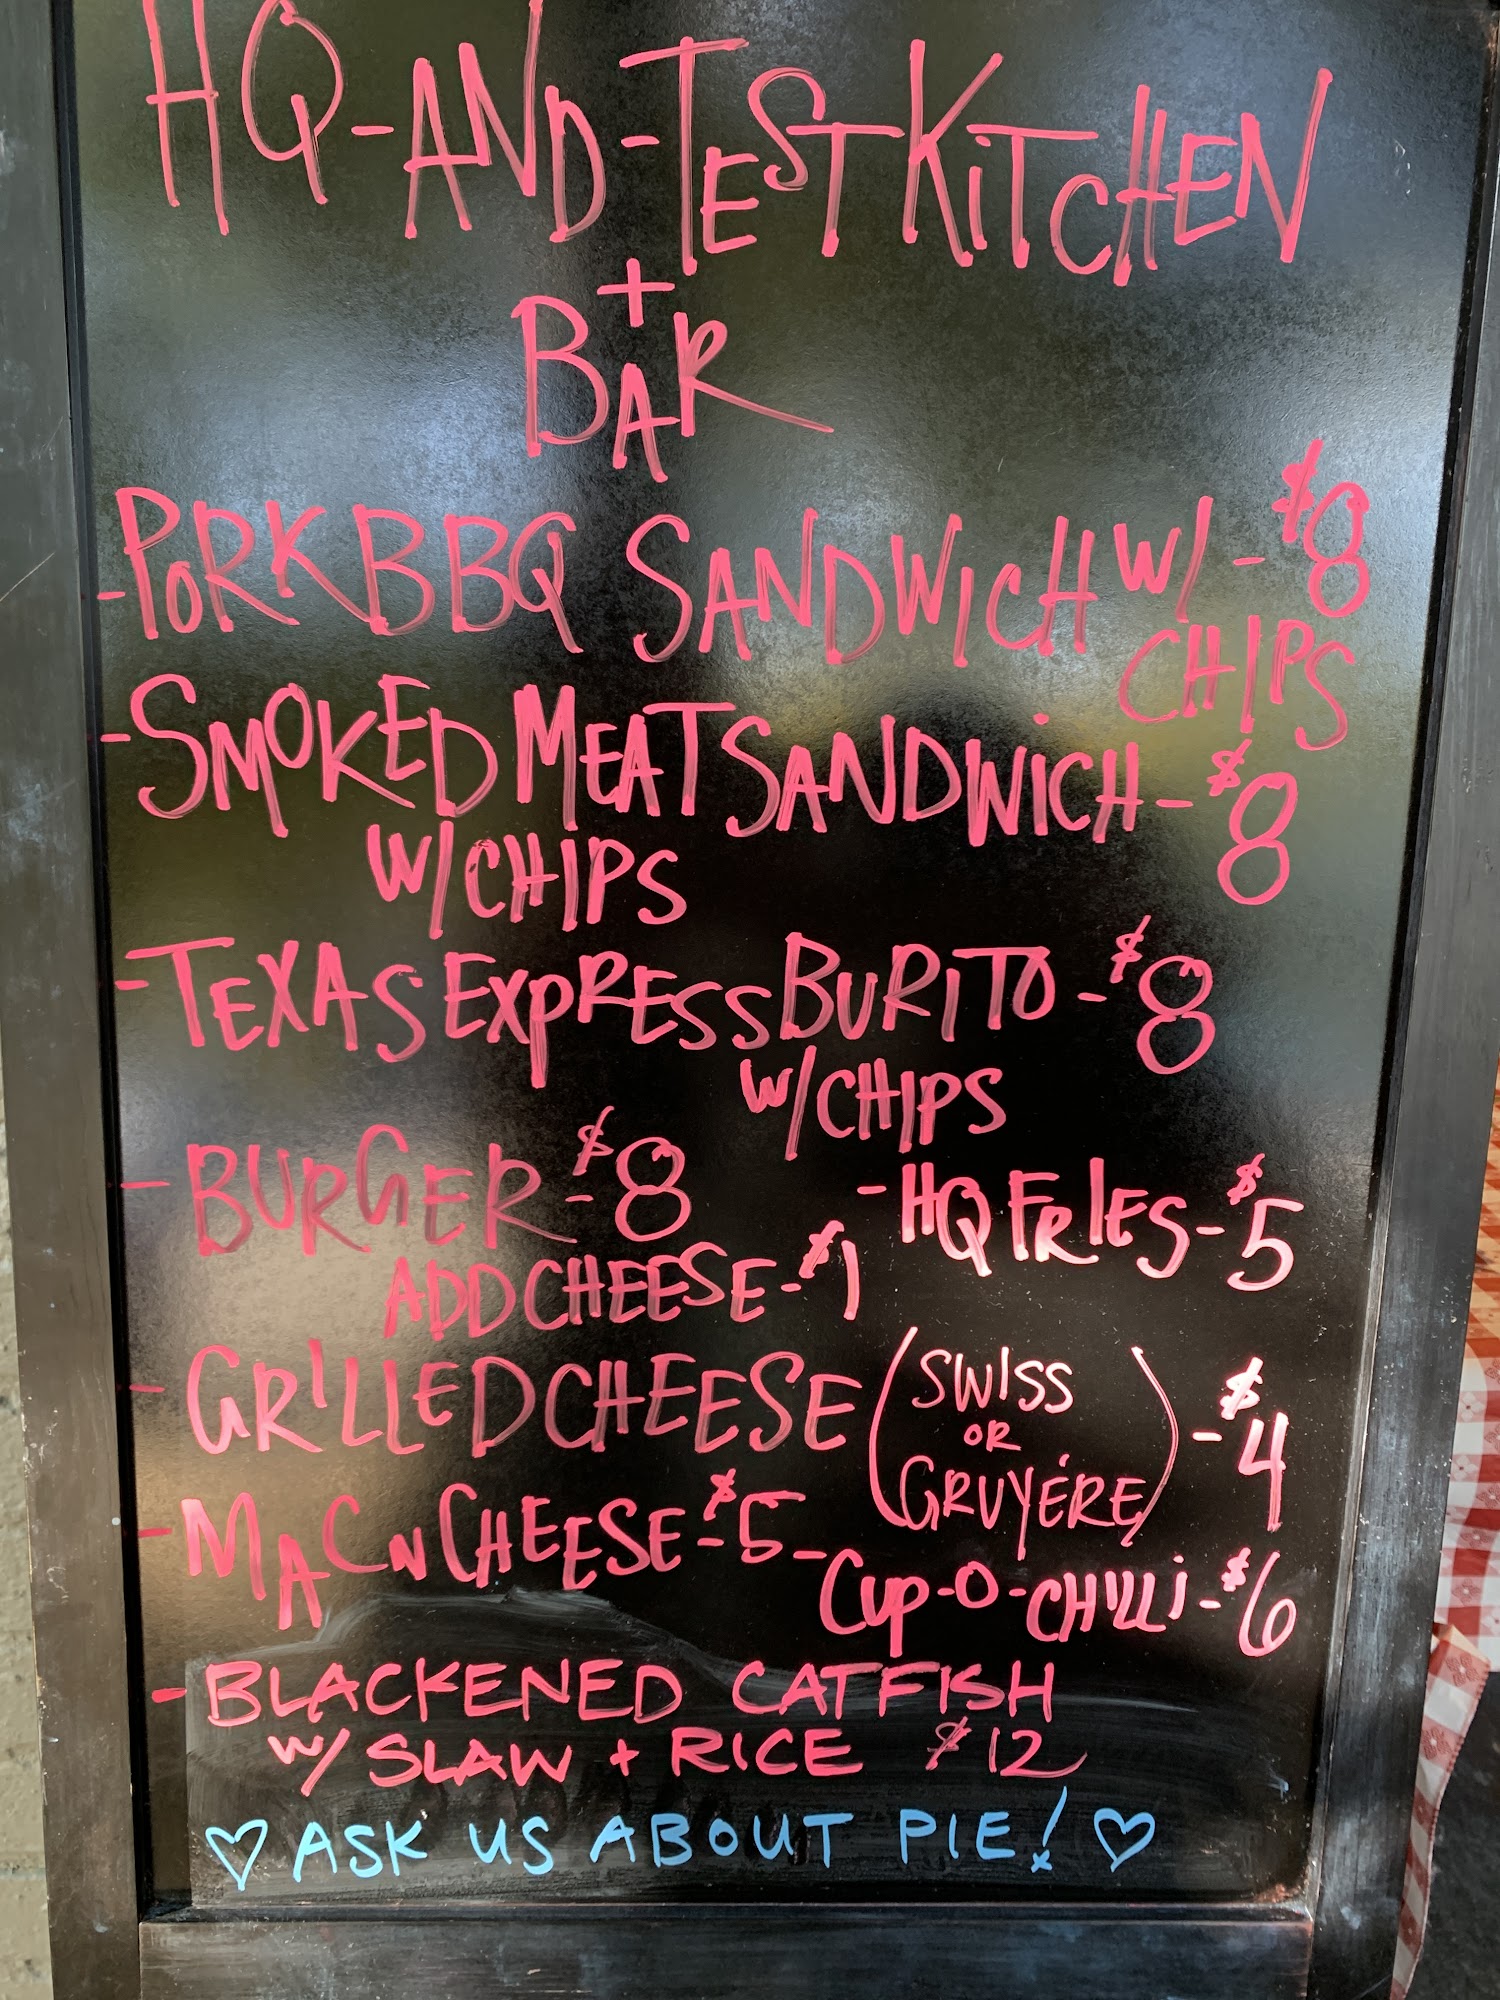 HQ-AND-TEST KITCHEN
+
BAR
- PORK BBQ SANDWICH W/ - $8
CHIPS
- SMOKED MEAT SANDWICH - $8
W/ CHIPS
- TEXAS EXPRESS BURITO - $8
W/ CHIPS
- BURGER - $8
ADD CHEESE - $1
- HQ FRIES - $5
- GRILLED CHEESE (SWISS OR GRUYÉRE) - $4
- MAC N CHEESE - $5
- CUP-O-CHILLI - $6
- BLACKENED CATFISH
W/ SLAW + RICE $12
♡ ASK US ABOUT PIE! ♡